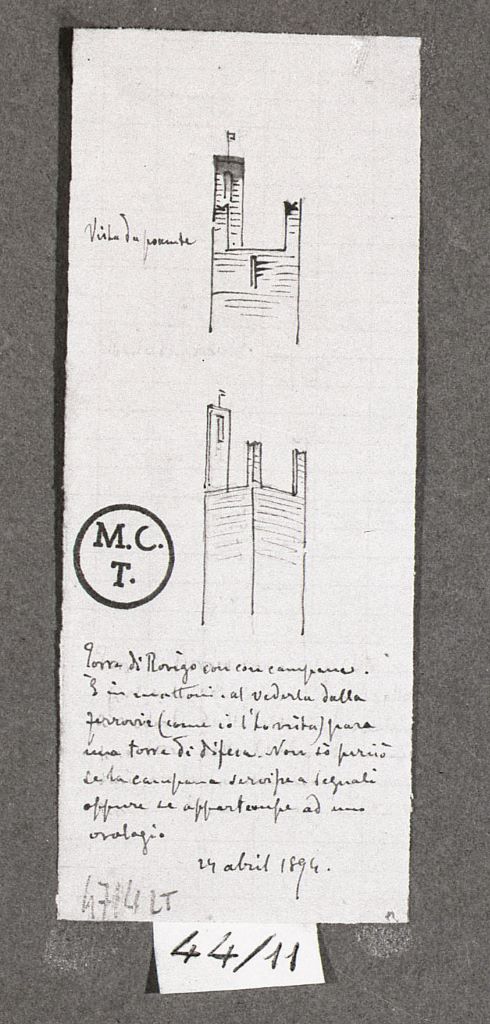 Vista da ponente
M.C.
T.
Torre di Rovigo con con campana.
È in mattoni. al vederla dalla
ferrovia (come io l'ho vista) pare
una torre di difesa. Non sò perciò
se la campana servisse a segnali
oppure se appartenesse ad uno
orologio
24 abril 1894.
4714 LT
44/11